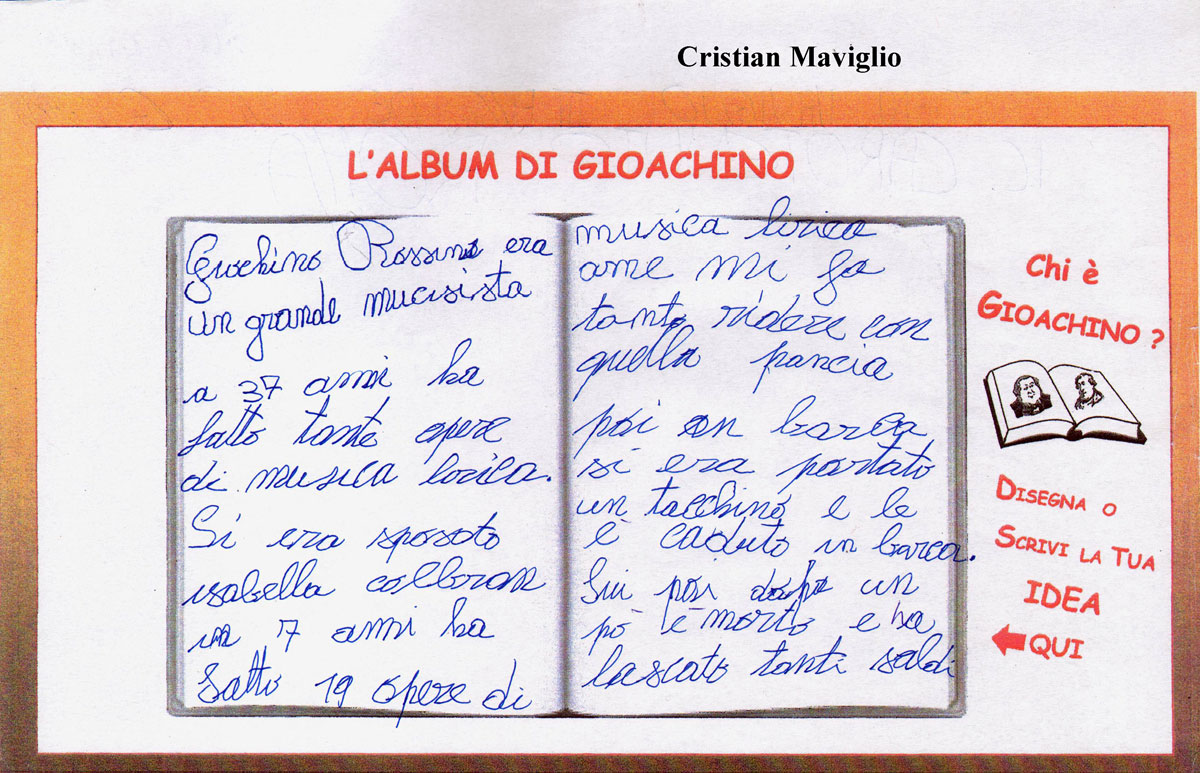 Cristian Maviglio
L'ALBUM DI GIOACHINO
Giochino Rossini era
un grande mucisista
a 37 anni ha
fatto tante opere
di musica lirica.
Si era sposato
isabella colbran
in 7 anni ha
fatto 19 opere di
musica lirica
ame mi fa
tanto ridere con
quella pancia
poi in barca
si era portato
un tacchino e le
è caduto in barca.
Lui poi dopo un
pò è morto e ha
lascato tanti soldi
Chi è
GIOACHINO ?
DISEGNA O
SCRIVI LA TUA
IDEA
QUI